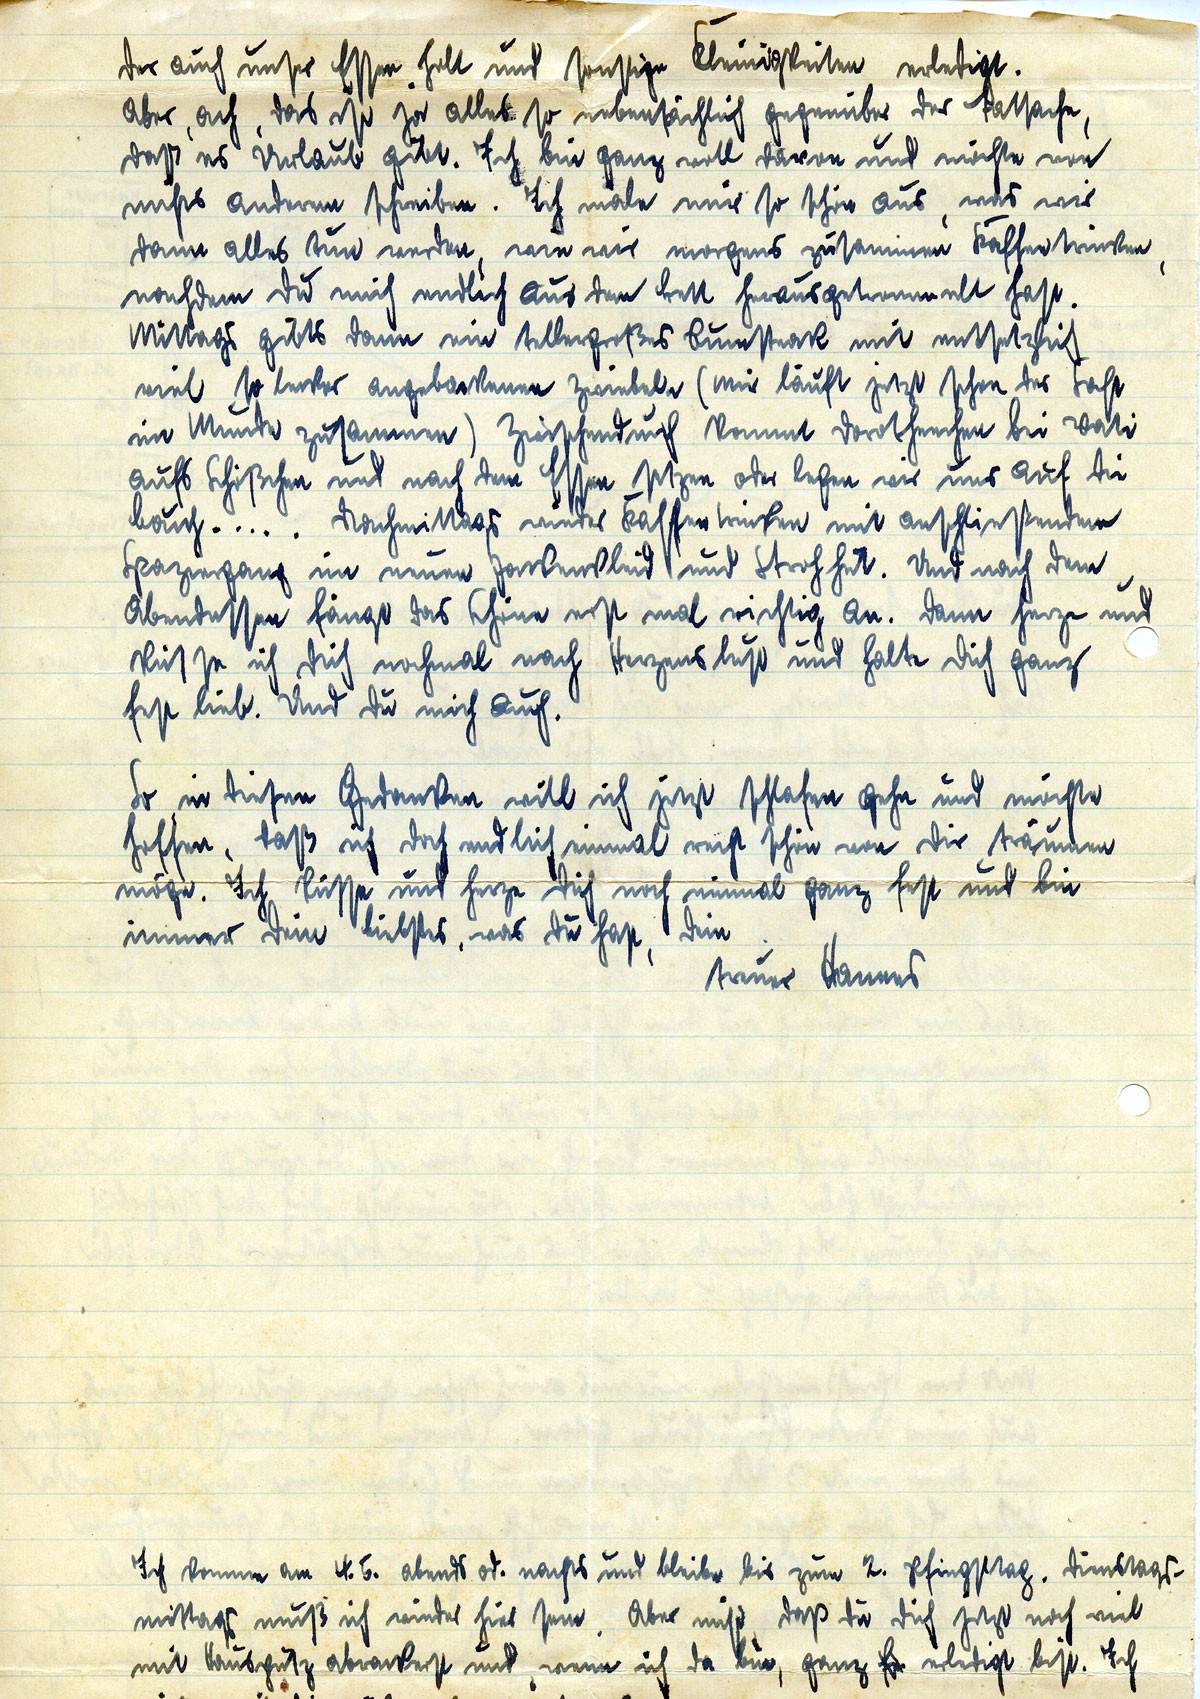 der auch unser Essen holt und sonstige Kleinigkeiten erledigt.
Aber, ach, das ist ja alles so nebensächlich gegenüber der Tatsache,
daß es Urlaub gibt. Ich bin ganz voll davon und möchte von
nichts anderem schreiben. Ich male mir so schön aus, was wir
dann alles tun werden, wie wir morgens zusammen Kaffeetrinken,
nachdem Du mich endlich aus dem Bett herausgetrommelt hast.
Mittags gibts dann ein tellergroßes Rumsteak mit entsetzlich
viel so lecker angebackenen Zwiebeln (mir läuft jetzt schon der Saft
im Munde zusammen) Zwischendurch kommt Dorotheechen bei Vati
aufs Schößchen und nach dem Essen setzen oder legen wir uns auf die
Couch..... Nachmittags wieder Kaffeetrinken mit anschließendem
Spaziergang im neuen Jackenkleid und Strohhut. Und nach dem
Abendessen fängt das Schöne erst mal richtig an. Dann herze und
küsse ich Dich nochmal nach Herzenslust und halte Dich ganz
fest lieb. Und Du mich auch.
So in diesen Gedanken will ich jetzt schlafen gehn und möchte
hoffen, daß ich doch endlich einmal recht schön von Dir träumen
möge. Ich küsse und herze Dich noch einmal ganz fest und bin
immer Dein liebstes, was Du hast, Dein
treuer Hannes
Ich komme am 4.6. abends od. nachts und bleibe bis zum 2. Pfingsttag. Dienstags-
mittags muß ich wieder hier sein. Aber nicht, daß Du Dich jetzt noch viel
mit Hausputz abrackerst und, wenn ich da bin, ganz erledigt bist. Ich